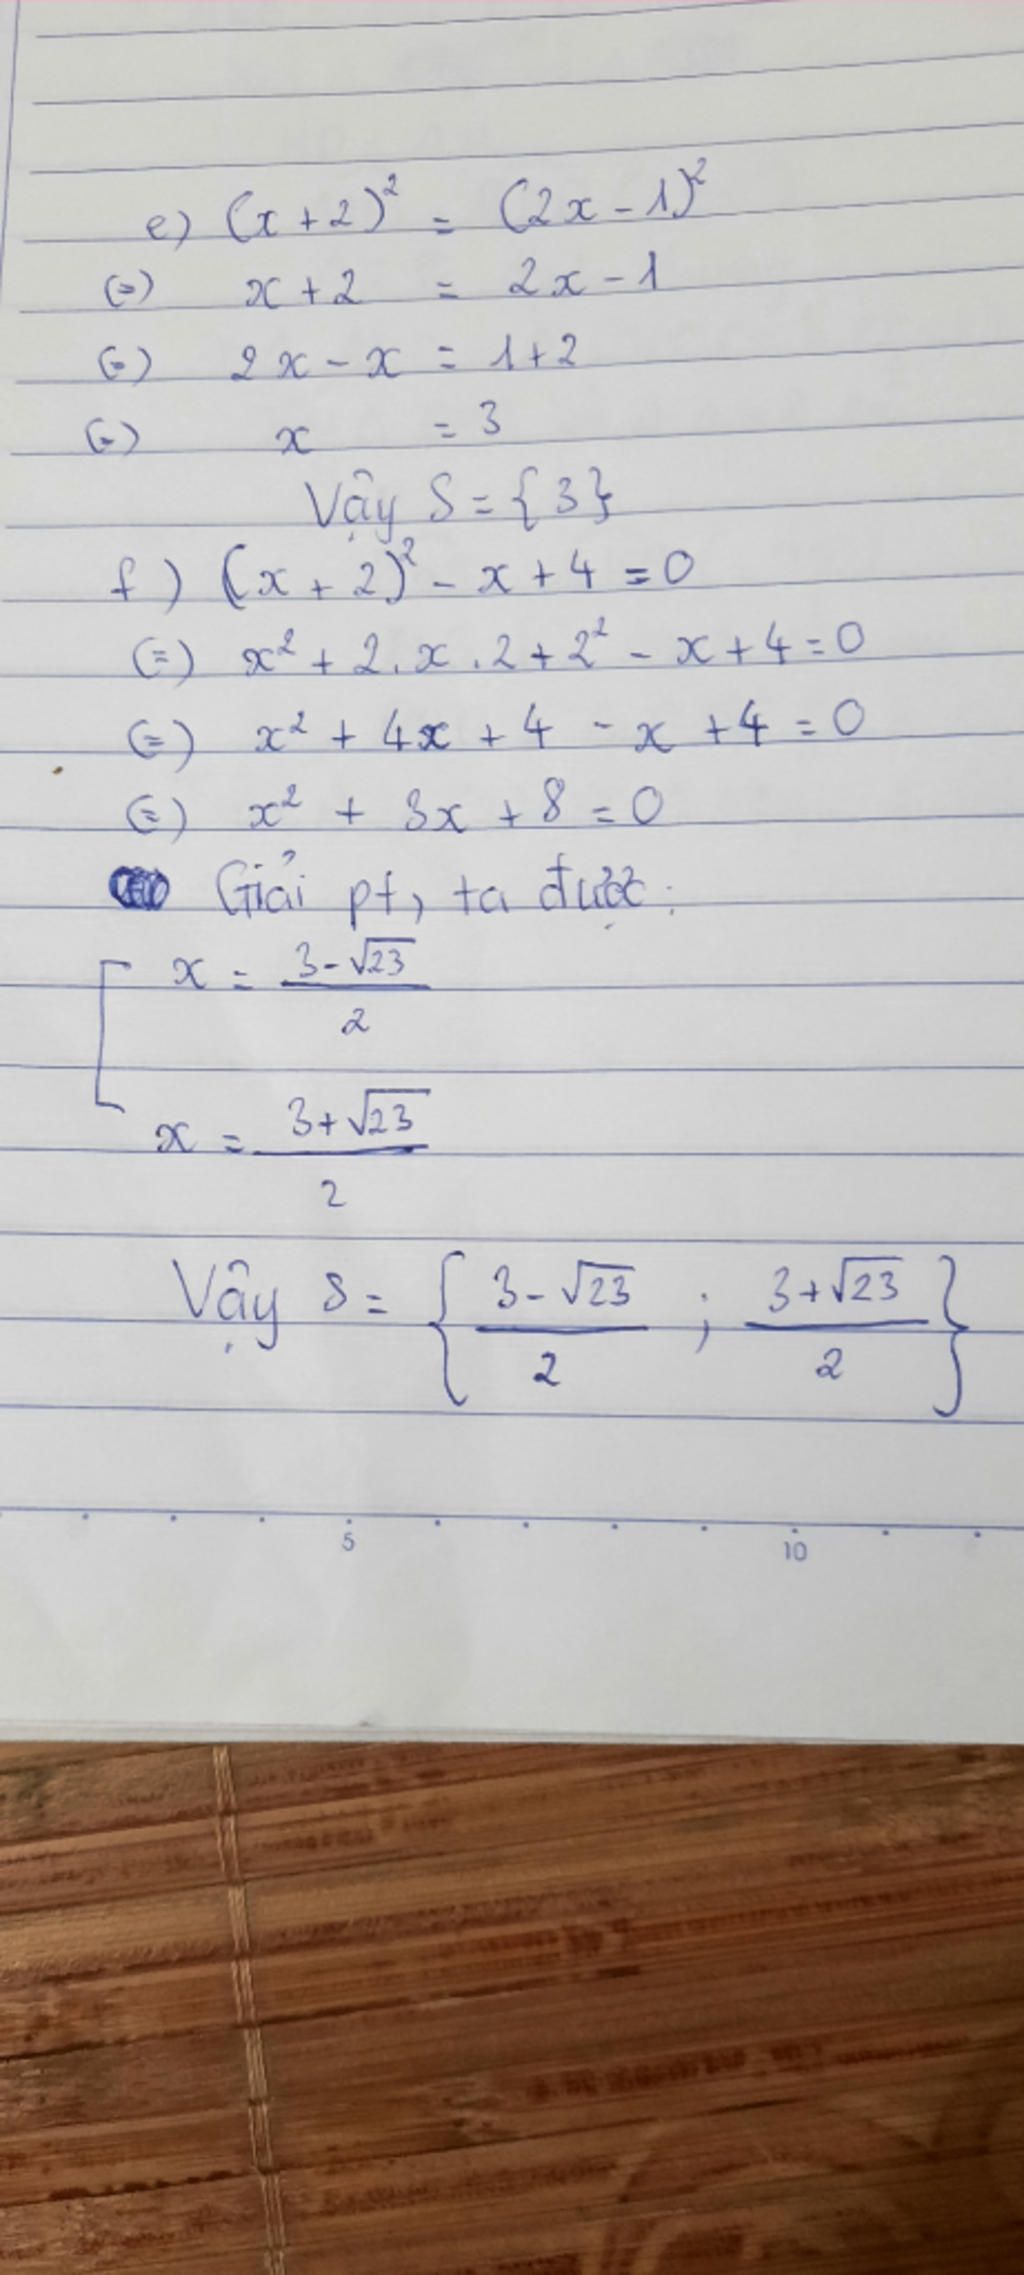 e) (x + 2)² = (2x - 1)²
(=) x + 2 = 2x - 1
(=) 2x - x = 1 + 2
(=) x = 3
Vậy S = {3}
f) (x + 2)² - x + 4 = 0
(=) x² + 2.x.2 + 2² - x + 4 = 0
(=) x² + 4x + 4 - x + 4 = 0
(=) x² + 3x + 8 = 0
Giải pt, ta được:
x = (3 - √23)/2
x = (3 + √23)/2
Vậy S = {(3 - √23)/2 ; (3 + √23)/2}
5 10